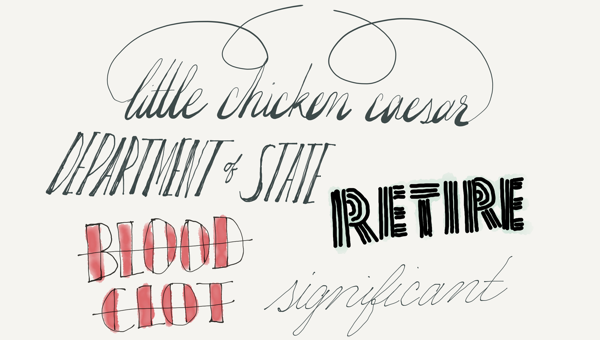 little chicken caesar
DEPARTMENT of STATE
RETIRE
BLOOD
CLOT
significant